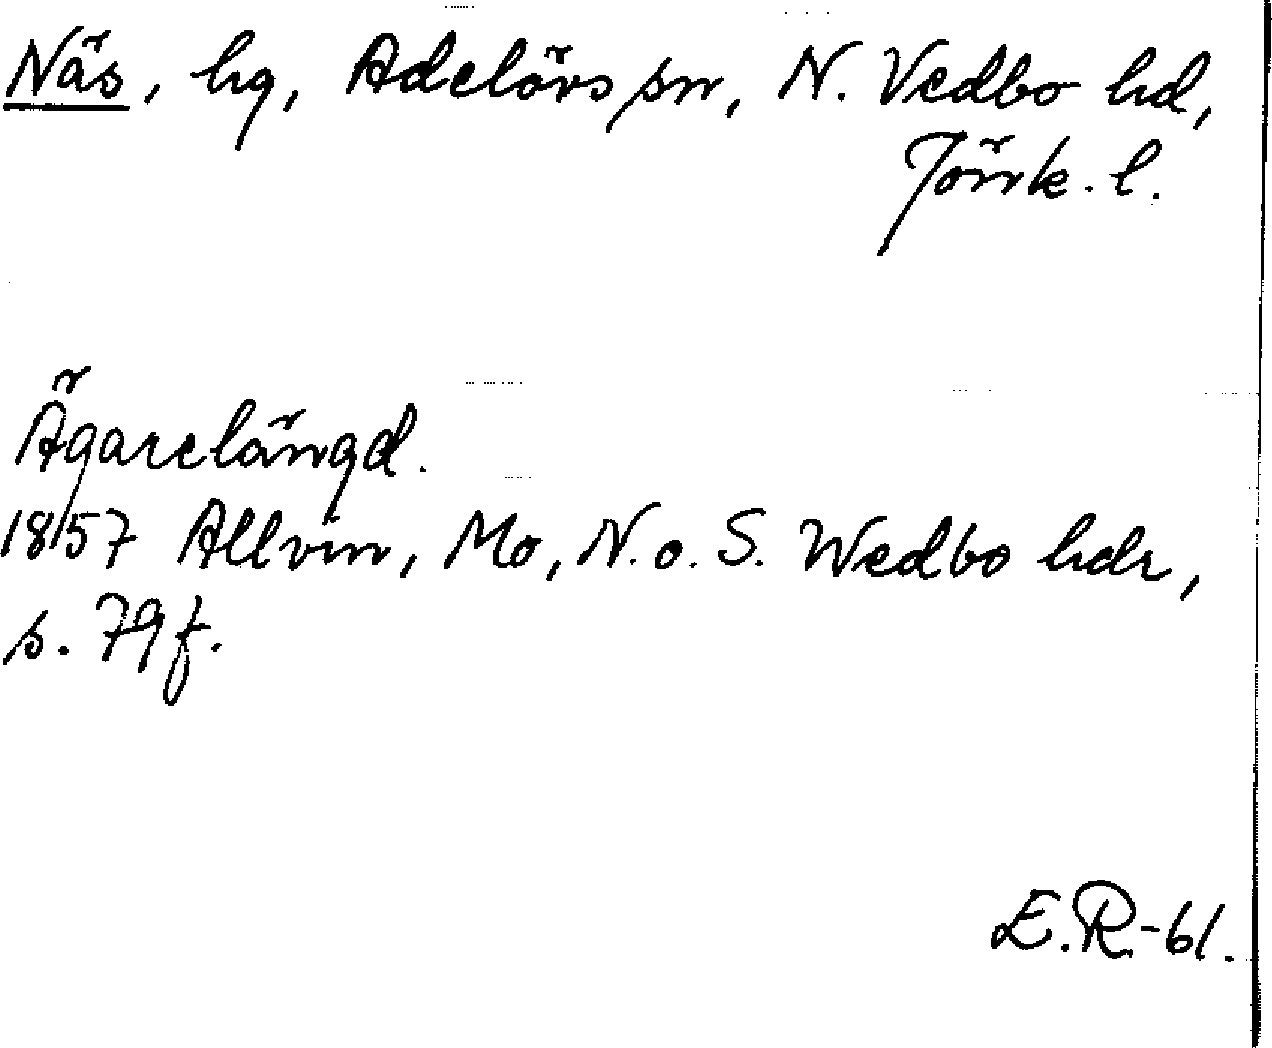 Näs, hg, Adelövs sn, N. Vedbo hd,
Jönk. l.
Ägarelängd.
1857 Allvin, Mo, N. o. S. Wedbo hdr,
s. 79 f.
E.R.-61.